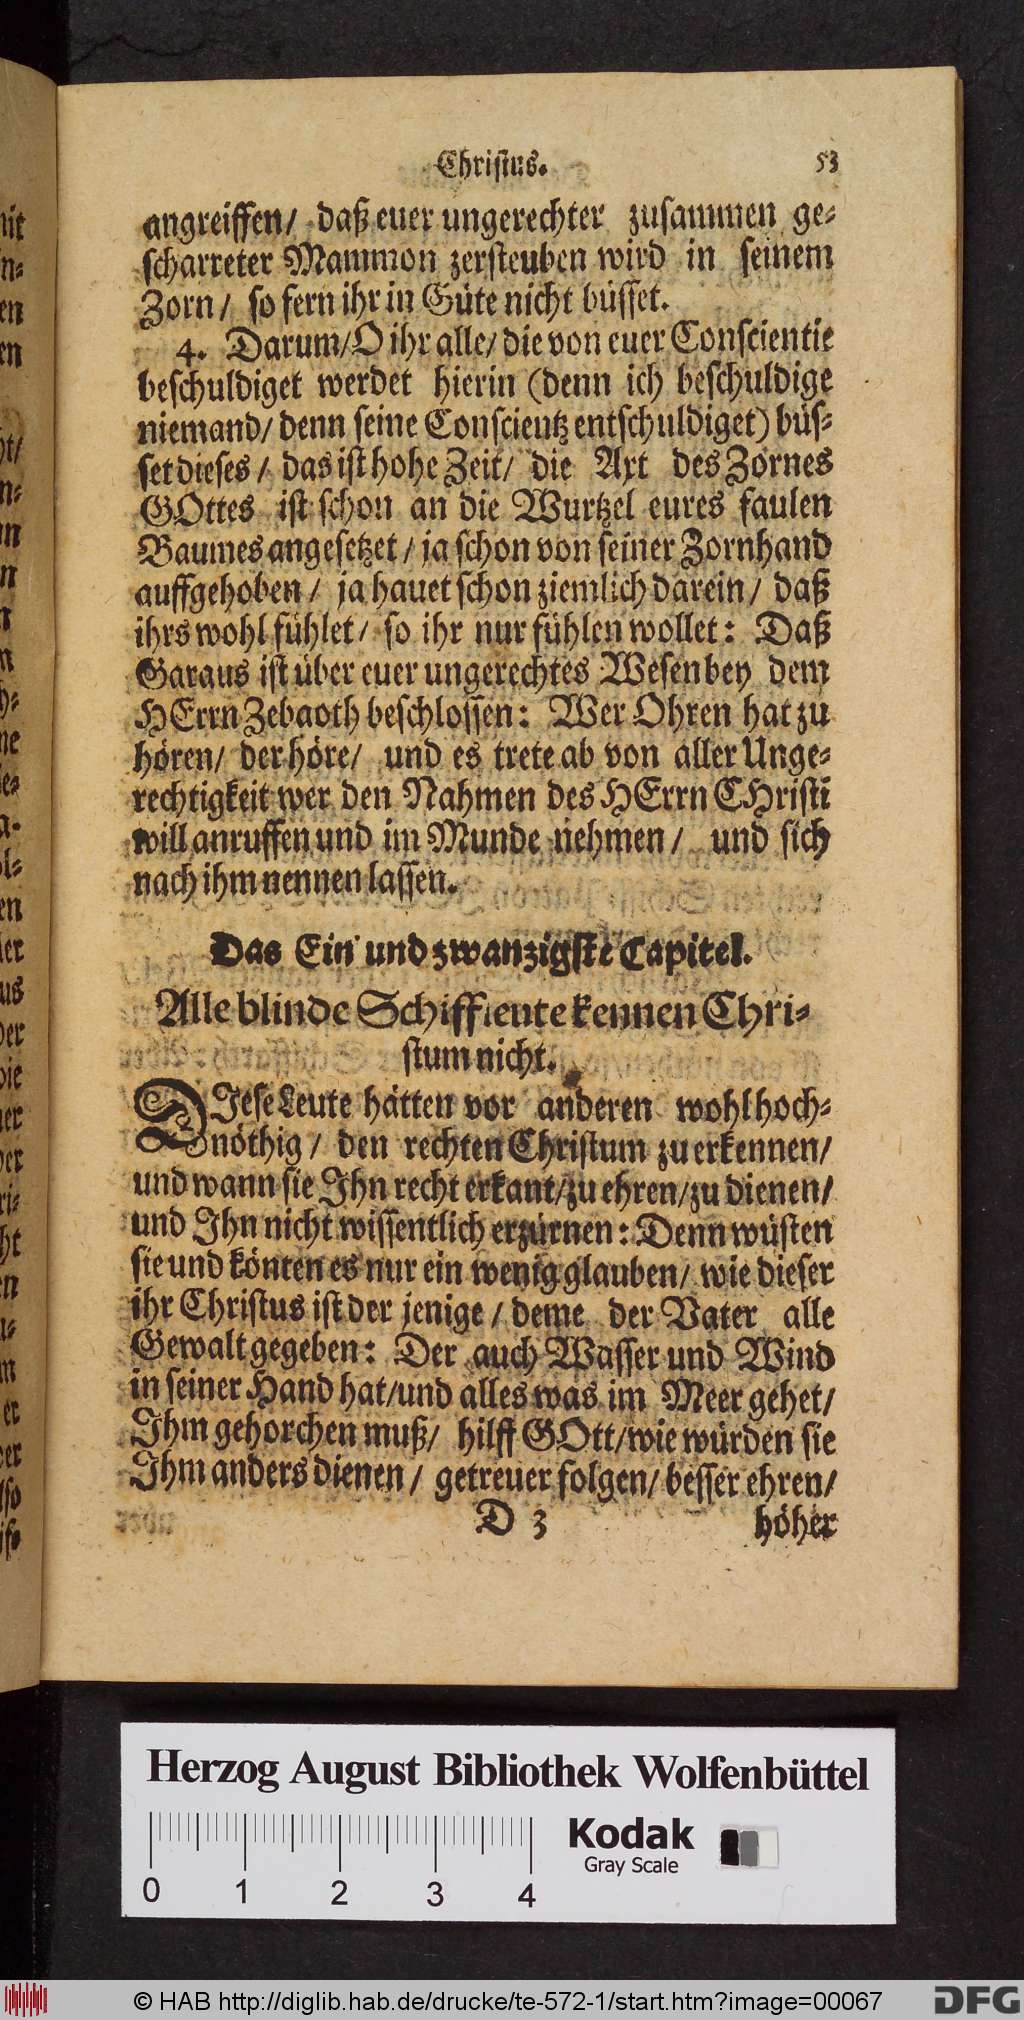 Christus. 53
angreiffen/ daß euer ungerechter zusammen ge-
scharreter Mammon zersteuben wird in seinem
Zorn/ so fern ihr in Güte nicht büsset.
4. Darum/ O ihr alle/ die von euer Conscientie
beschuldiget werdet hierin (denn ich beschuldige
niemand/ denn seine Conscientz entschuldiget) büs-
set dieses/ das ist hohe Zeit/ die Axt des Zornes
GOttes ist schon an die Wurtzel eures faulen
Baumes angesetzet/ ja schon von seiner Zornhand
auffgehoben/ ja hauet schon ziemlich darein/ daß
ihrs wohl fühlet/ so ihr nur fühlen wollet: Daß
Garaus ist über euer ungerechtes Wesen bey dem
HErrn Zebaoth beschlossen: Wer Ohren hat zu
hören/ der höre/ und es trete ab von aller Unge-
rechtigkeit wer den Nahmen des HErrn CHristi
will anruffen und im Munde nehmen/ und sich
nach ihm nennen lassen.
Das Ein und zwanzigste Capitel.
Alle blinde Schiffleute kennen Chri-
stum nicht.
DIese Leute hätten vor anderen wohl hoch-
nöthig/ den rechten Christum zu erkennen/
und wann sie Ihn recht erkant/ zu ehren/ zu dienen/
und Ihn nicht wissentlich erzürnen: Denn wüsten
sie und könten es nur ein wenig glauben/ wie dieser
ihr Christus ist der jenige/ deme der Vater alle
Gewalt gegeben: Der auch Wasser und Wind
in seiner Hand hat/ und alles was im Meer gehet/
Ihm gehorchen muß/ hilff GOtt/ wie würden sie
Ihm anders dienen/ getreuer folgen/ besser ehren/
D 3 höher
Herzog August Bibliothek Wolfenbüttel
Kodak
Gray Scale
0 1 2 3 4
© HAB http://diglib.hab.de/drucke/te-572-1/start.htm?image=00067
DFG